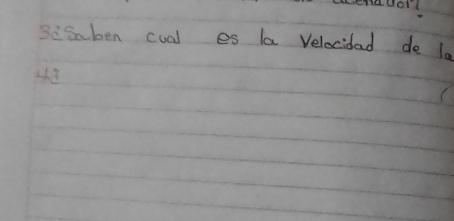 si saben cual es la velocidad de la